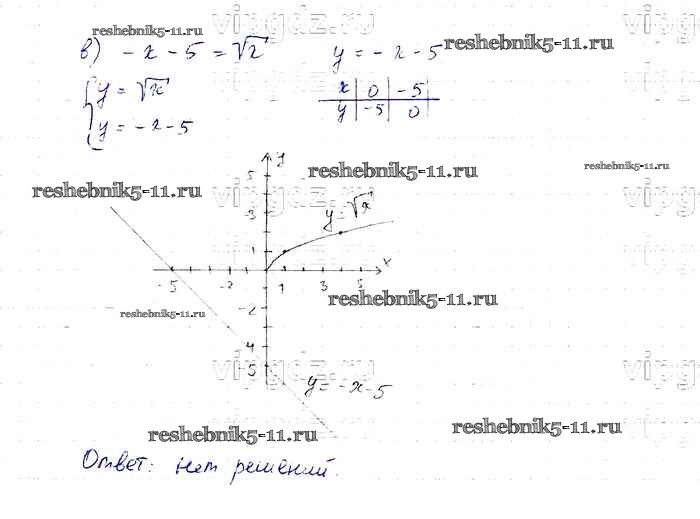 reshebnik5-11.ru
в) -x - 5 = √x
y = -x - 5
reshebnik5-11.ru
{ y = √x
x | 0 | -5
y = -x - 5
y | -5 | 0
vipgdz.ru
reshebnik5-11.ru
reshebnik5-11.ru
reshebnik5-11.ru
vipgdz.ru
vipgdz.ru
y
5
3
y = √x
1
x
-5
-2
1
3
5
reshebnik5-11.ru
reshebnik5-11.ru
-2
4
vipgdz.ru
vipgdz.ru
5
y = -x - 5
reshebnik5-11.ru
reshebnik5-11.ru
Ответ: нет решений.